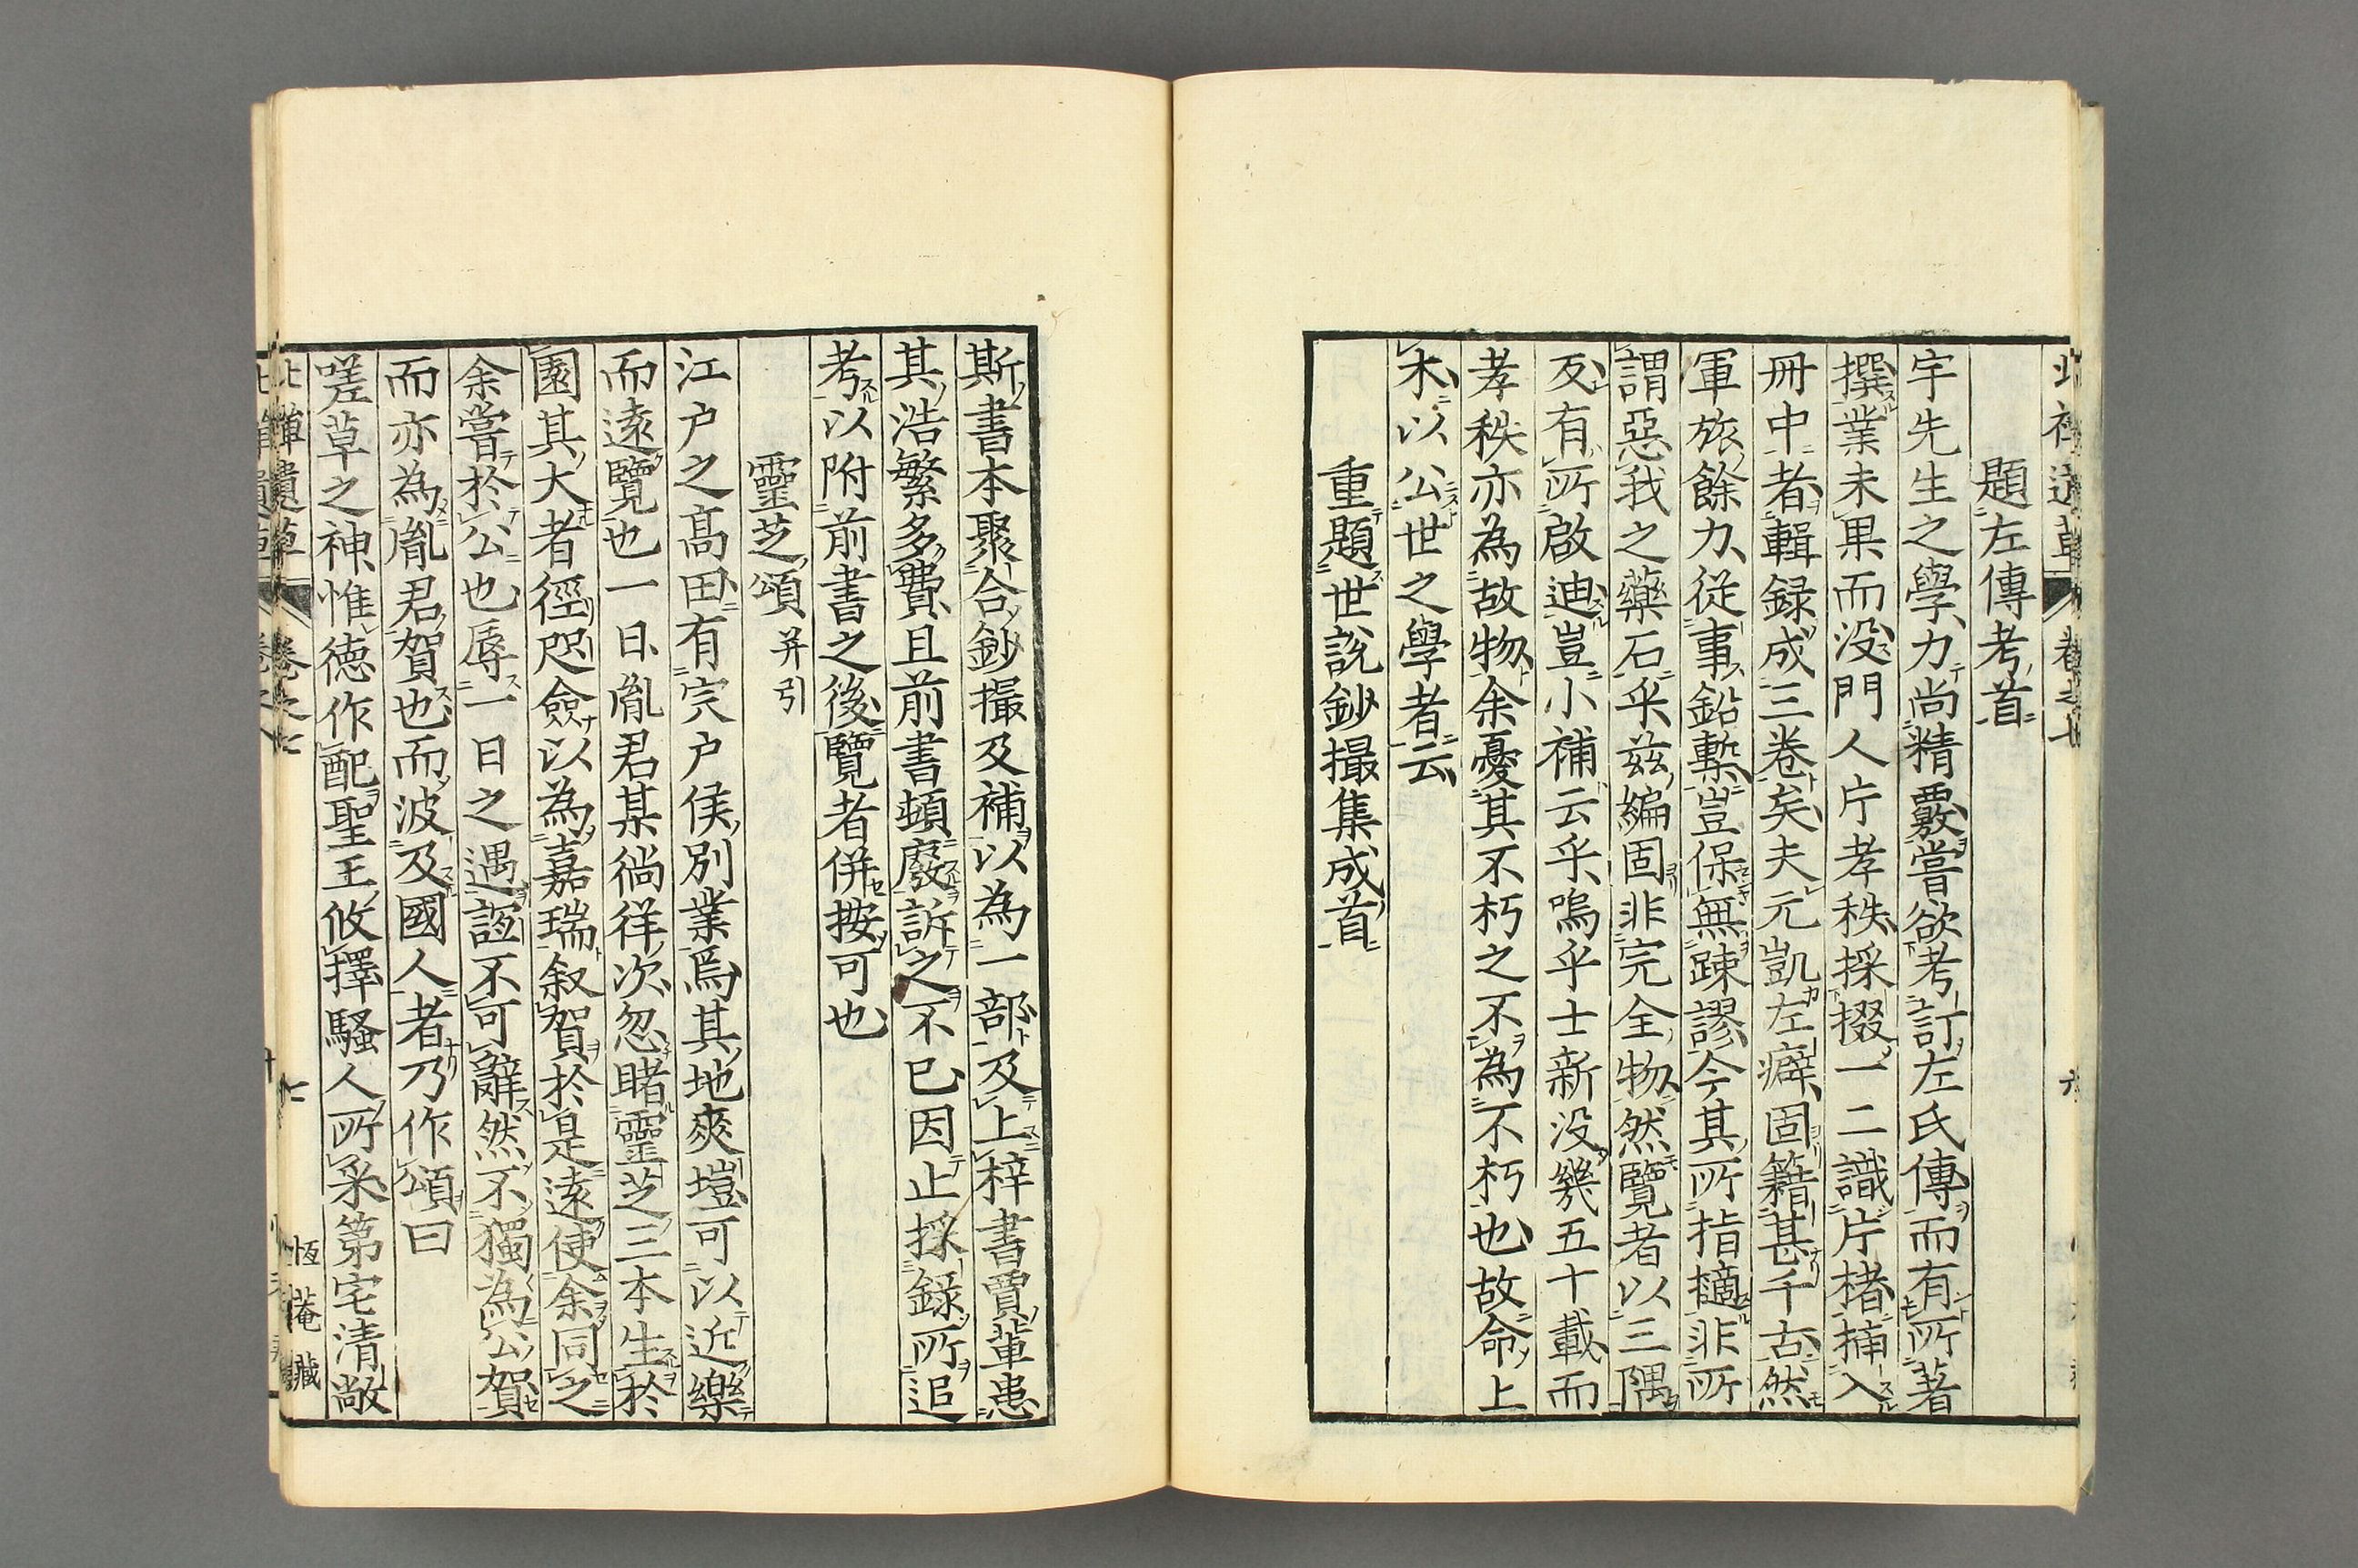 題左傳考首
宇先生之學力尚精覈嘗欲考訂左氏傳而有所著
撰業未果而没門人片孝秩採掇一二識片楮插入
冊中者輯録成三卷矣夫元凱左癖固籍甚千古然
軍旅餘力從事鉛槧豈保無踈謬今其所指擿非所
謂惡我之藥石乎茲編固非完全物然覽者以三隅
反有所啟迪豈小補云乎嗚乎士新没幾五十載而
孝秩亦為故物余憂其不朽之不為不朽也故命上
木以公世之學者云
重題世説鈔撮集成首
斯書本聚合鈔撮及補以為一部及上梓書賈輩患
其浩繁多費且前書頓廢訴之不已因止採録所追
考以附前書之後覽者併按可也
靈芝頌 并引
江戸之髙田有宍戸侯別業焉其地爽塏可以近樂
而遠覽也一日胤君某徜徉次忽睹靈芝三本生於
園其大者徑咫僉以為嘉瑞叙賀於是遠使余同之
余嘗於公也辱一日之遇誼不可辭然不獨為公賀
而亦為胤君賀也而波及國人者乃作頌曰
嗟草之神惟徳作配聖王攸擇騷人所采第宅清敞
恆菴藏